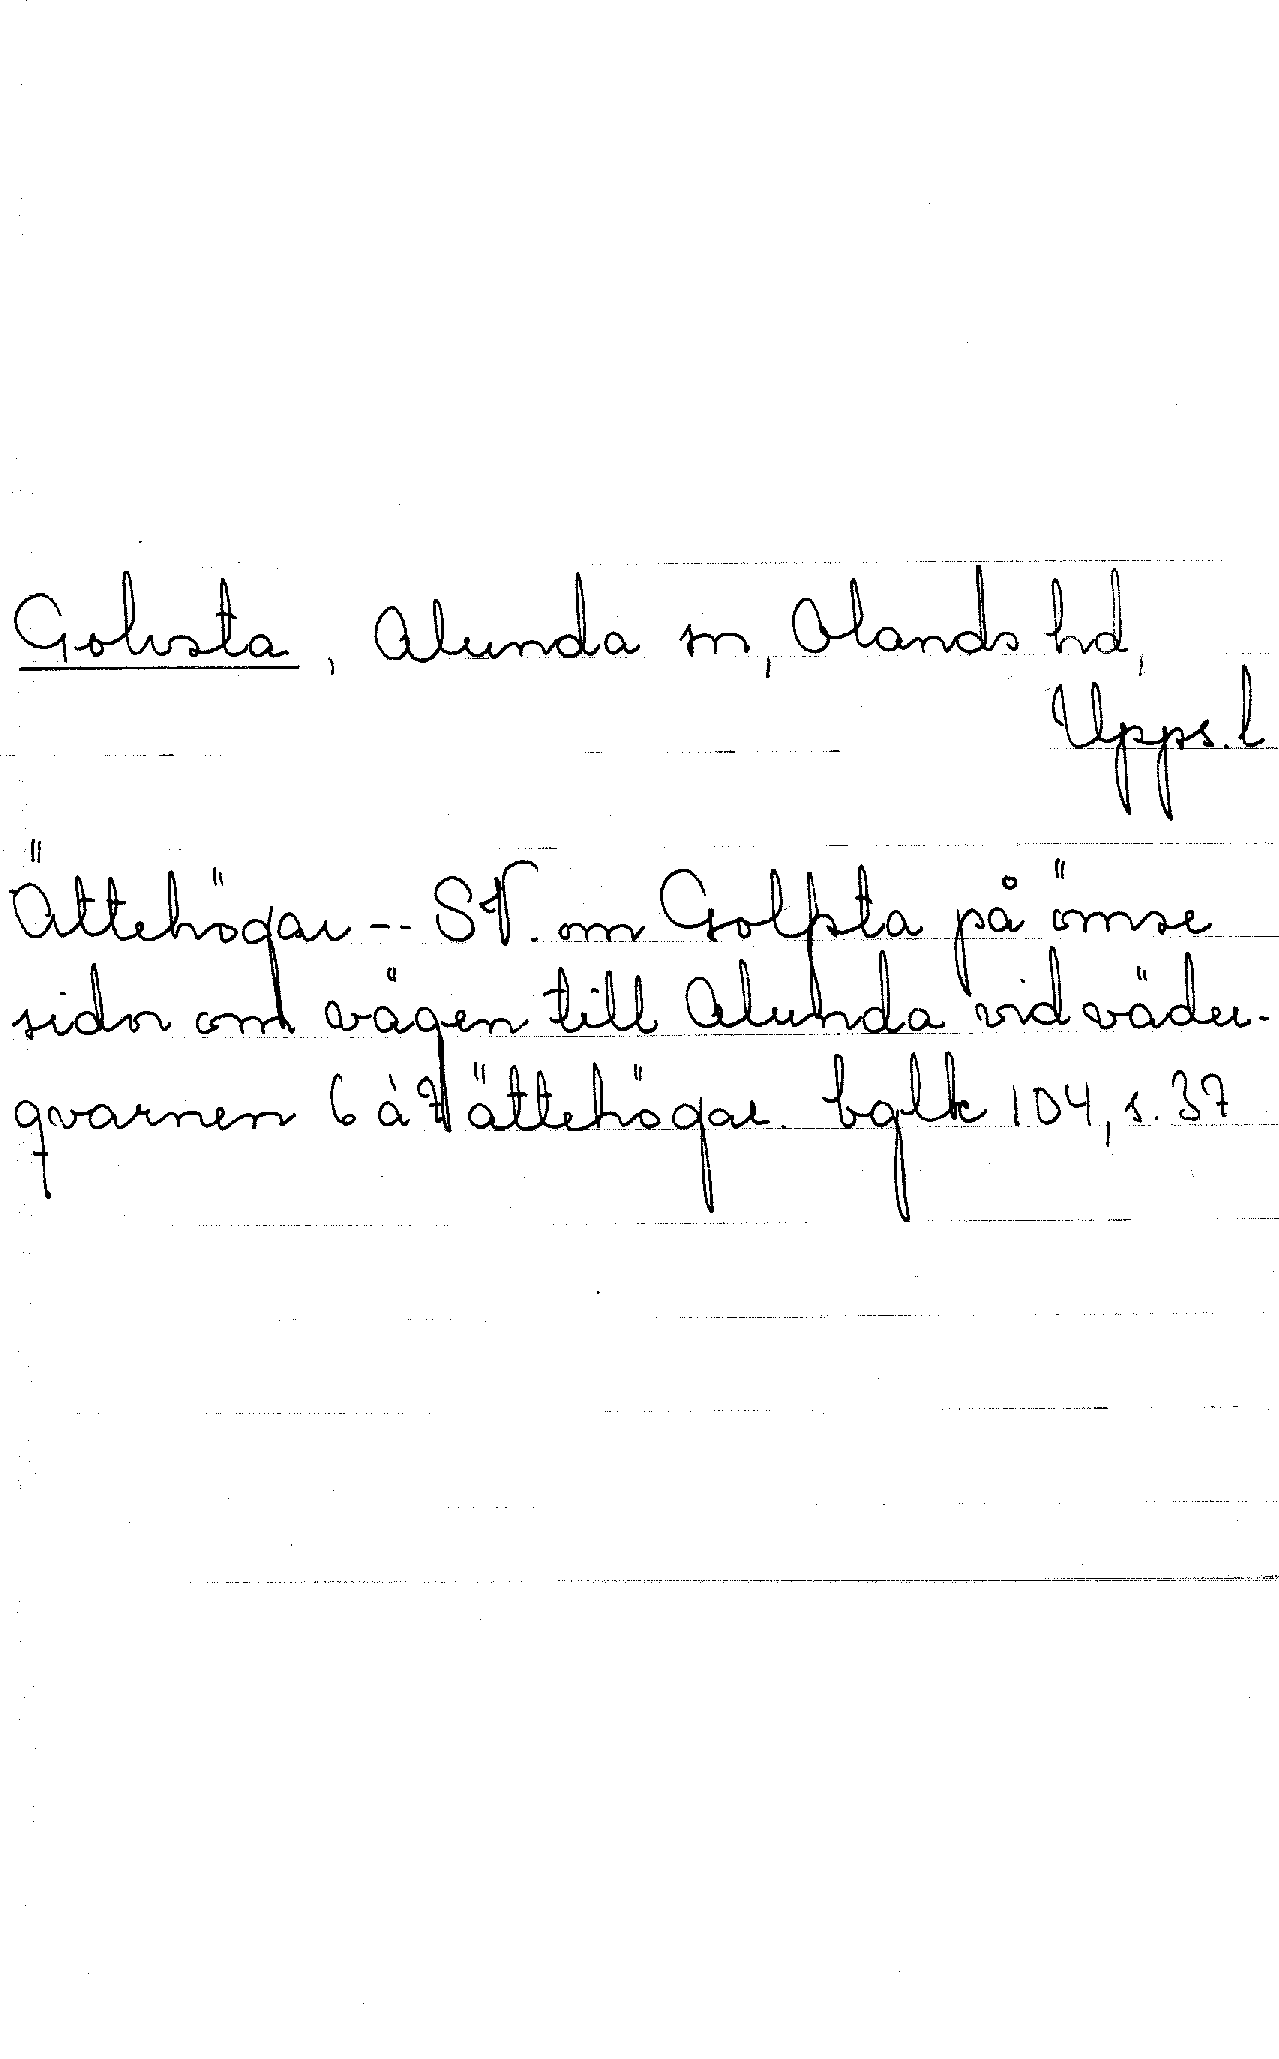 Golvsta, Alunda sn, Olands hd,
Upps. l
Ättehögar -- SV. om Golpsta på ömse
sidor om vägen till Alunda vid väder-
qvarnen 6 à 7 ättehögar. bglk 104, s. 37